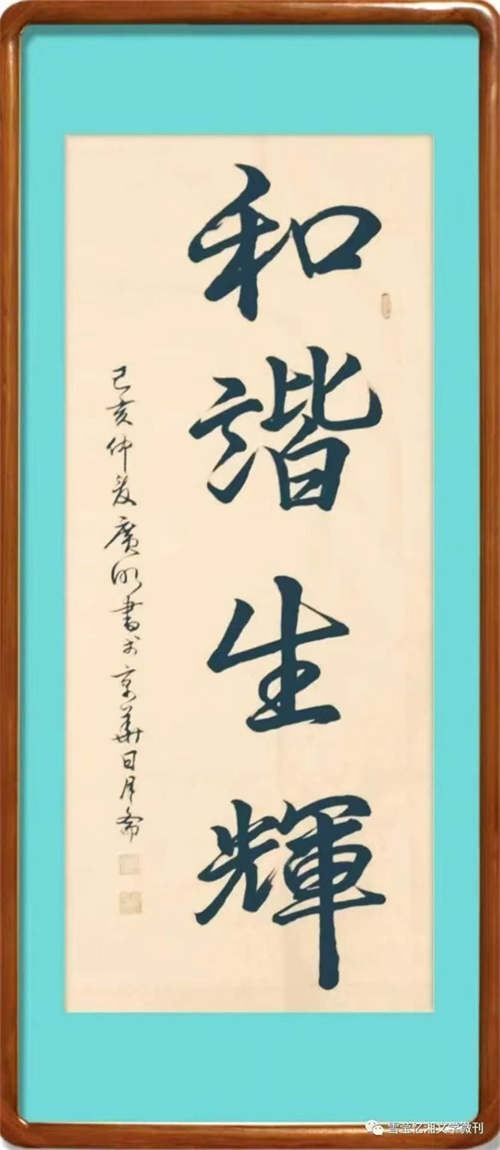 和諧生輝
己亥仲夏廣明書於京華日月齋
雪窒忆湘文学微刊